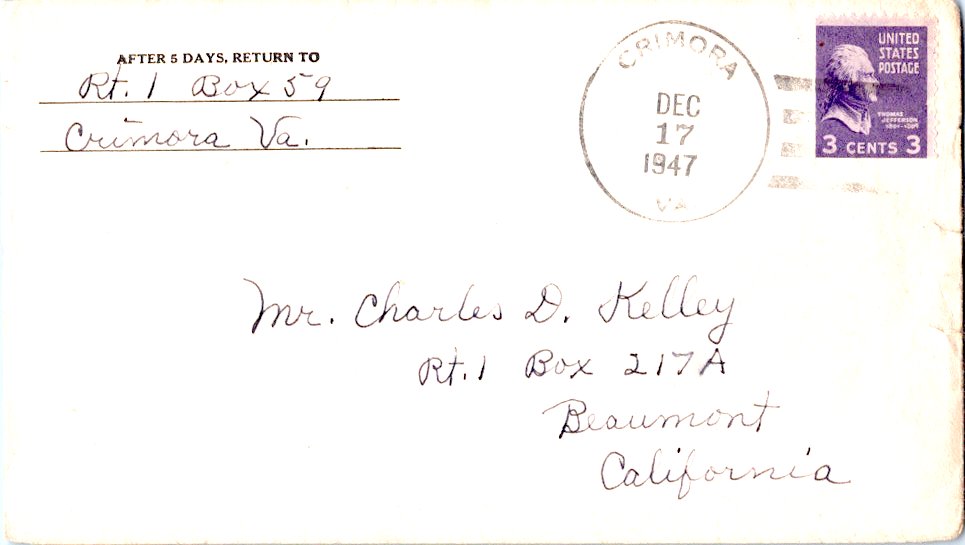 AFTER 5 DAYS, RETURN TO
Rt. 1 Box 59
Crimora Va.
CRIMORA
DEC
17
1947
VA
UNITED
STATES
POSTAGE
THOMAS
JEFFERSON
3 CENTS 3
Mr. Charles D. Kelley
Rt. 1 Box 217A
Beaumont
California